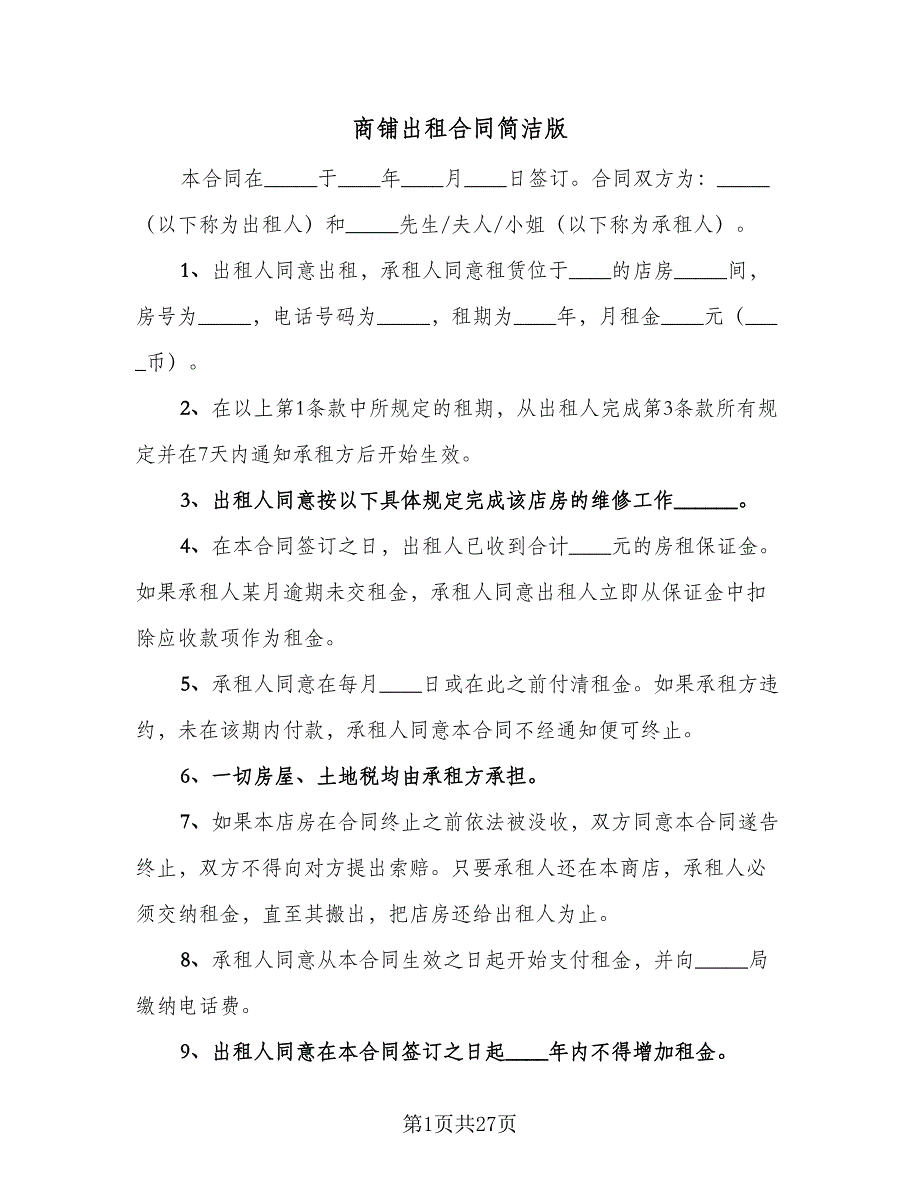 商铺出租合同简洁版
本合同在_____于____年____月____日签订。合同双方为：_____
（以下称为出租人）和_____先生/夫人/小姐（以下称为承租人）。
1、出租人同意出租，承租人同意租赁位于____的店房_____间，
房号为_____，电话号码为_____，租期为____年，月租金____元（___
_币）。
2、在以上第1条款中所规定的租期，从出租人完成第3条款所有规
定并在7天内通知承租方后开始生效。
3、出租人同意按以下具体规定完成该店房的维修工作______。
4、在本合同签订之日，出租人已收到合计____元的房租保证金。
如果承租人某月逾期未交租金，承租人同意出租人立即从保证金中扣
除应收款项作为租金。
5、承租人同意在每月____日或在此之前付清租金。如果承租方违
约，未在该期内付款，承租人同意本合同不经通知便可终止。
6、一切房屋、土地税均由承租方承担。
7、如果本店房在合同终止之前依法被没收，双方同意本合同遂告
终止，双方不得向对方提出索赔。只要承租人还在本商店，承租人必
须交纳租金，直至其搬出，把店房还给出租人为止。
8、承租人同意从本合同生效之日起开始支付租金，并向_____局
缴纳电话费。
9、出租人同意在本合同签订之日起____年内不得增加租金。
第1页共27页